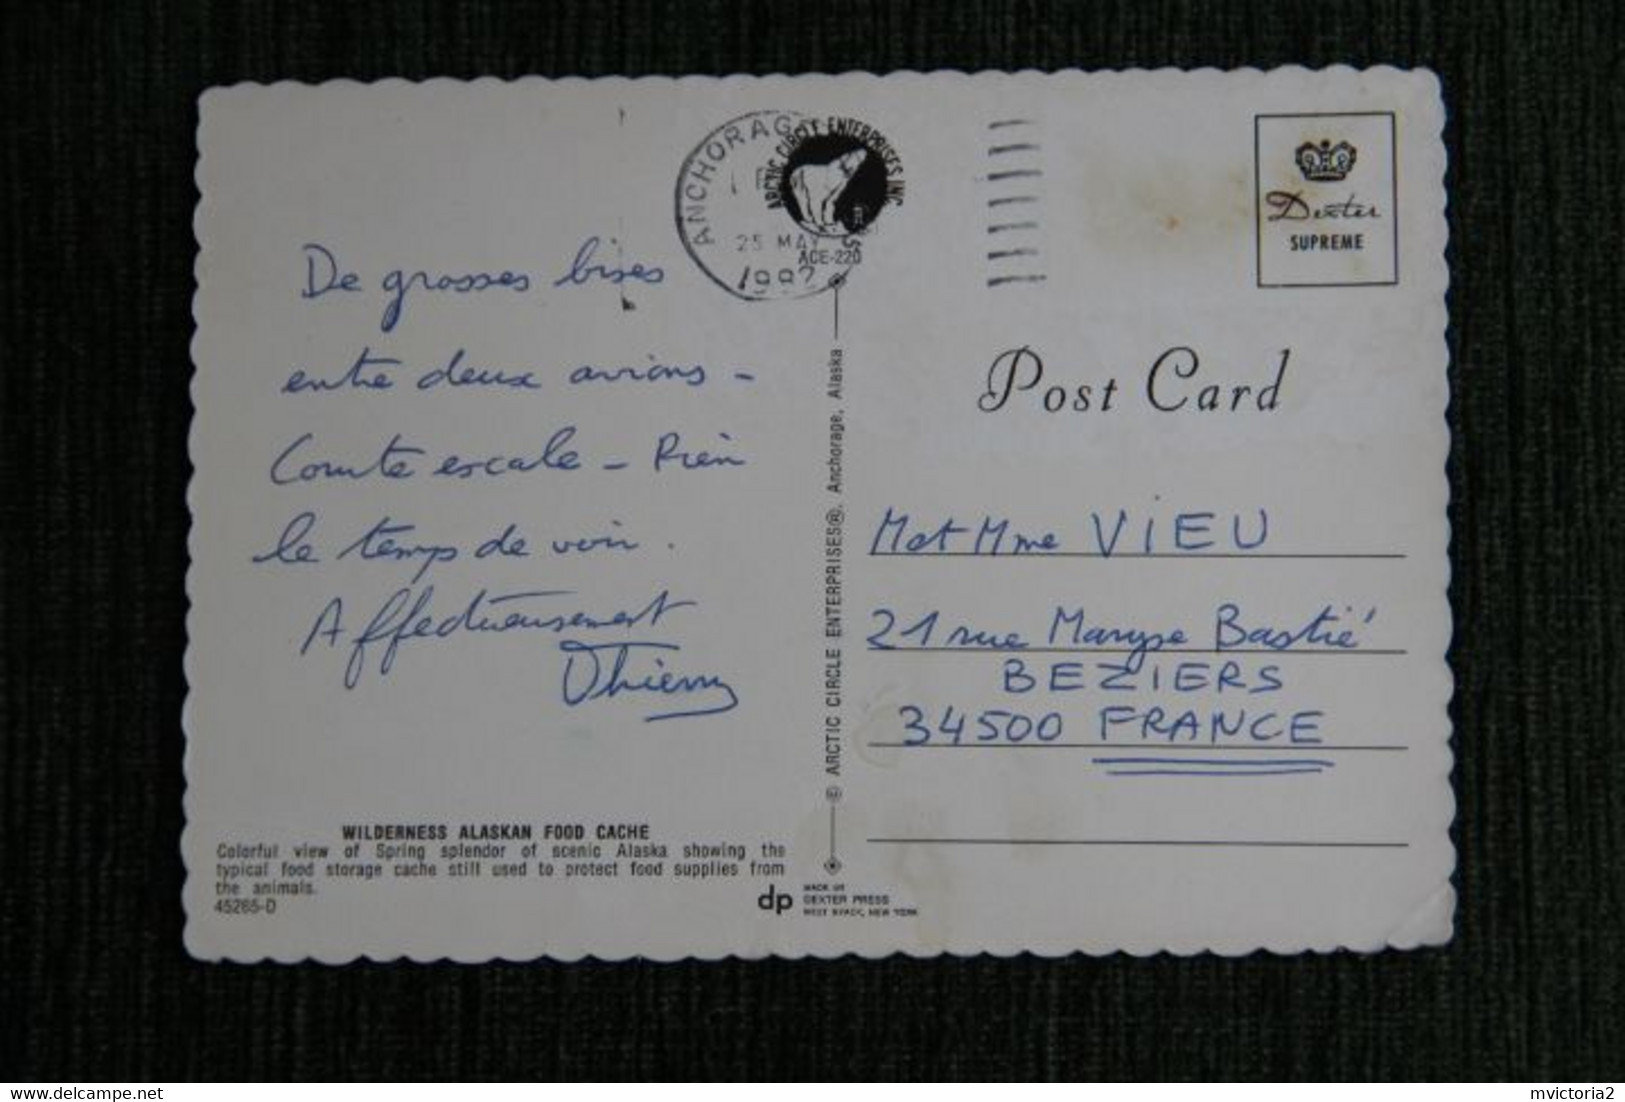 De grosses bises
entre deux avions -
Courte escale - Rien
le temps de voir.
Affectueusement
Thierry
WILDERNESS ALASKAN FOOD CACHE
Colorful view of Spring splendor of scenic Alaska showing the
typical food storage cache still used to protect food supplies from
the animals.
45265-D
ANCHORAG
25 MAY
ARCTIC CIRCLE ENTERPRISES INC
ACE-220
© ARCTIC CIRCLE ENTERPRISES®, Anchorage, Alaska
dp
DEXTER PRESS
WEST NYACK, NEW YORK
Dexter
SUPREME
Post Card
M et Mme VIEU
21 rue Maryse Bastié
BEZIERS
34500 FRANCE
mvictoria2